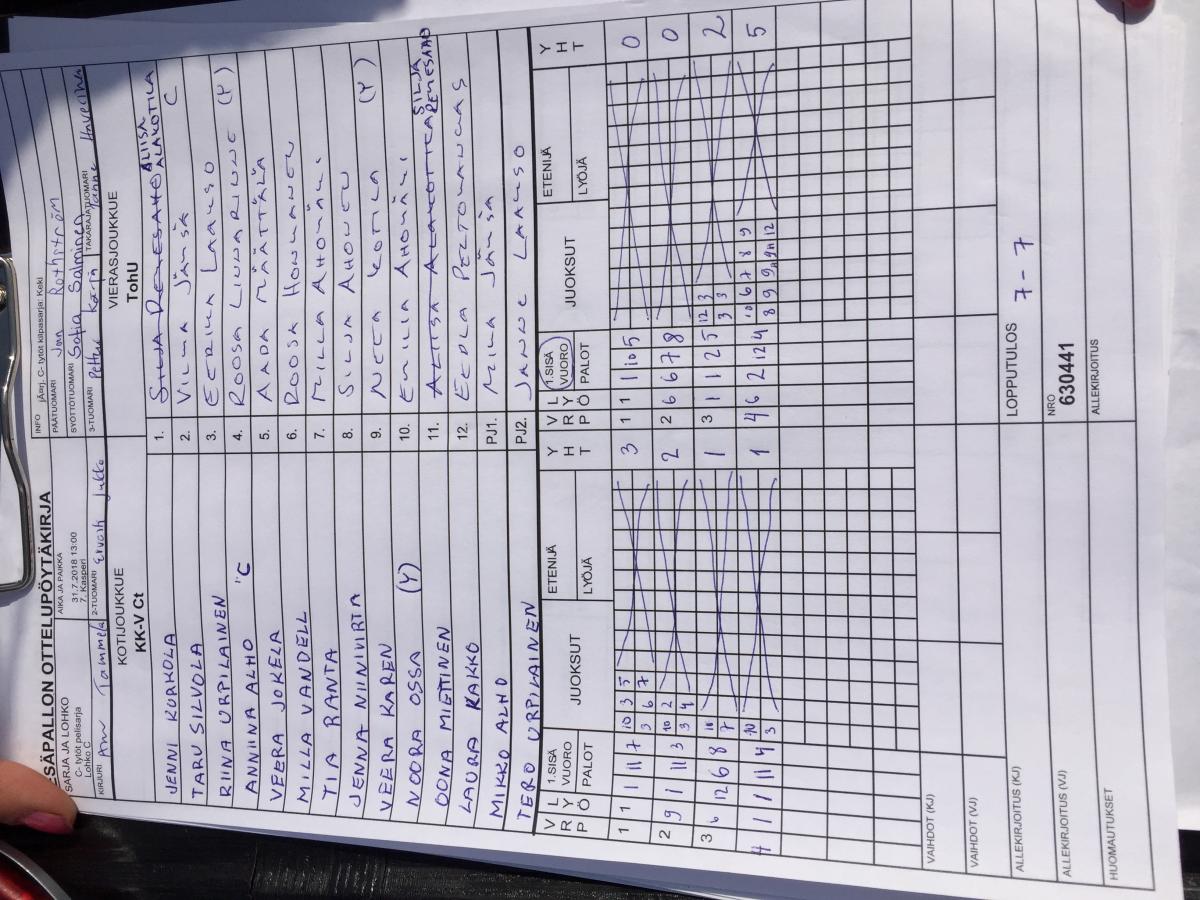 ESÄPALLON OTTELUPÖYTÄKIRJA
SARJA JA LOHKO
C- tytöt pelisarja
Lohko C
AIKA JA PAIKKA
31.7.2018 13:00
7. Kasperi
INFO jÄörj. C- tytöt kilpasarja: Keki
PÄÄTUOMARI Jan
SYÖTTÖTUOMARI Sofia Salminen
KIRJURI Anu Tammela
2-TUOMARI Jukka
3-TUOMARI Petteri
TAKARAJATUOMARI Janne
KOTIJOUKKUE
KK-V Ct
VIERASJOUKKUE
TohU
JENNI KURKOLA 1. SILJA RENESAHO ALIISA ALAKOTILA
TARU SILVOLA 2. VILMA JÄMSÄ C
RIINA URPILAINEN 3. EERIKA LAAKSO
ANNIINA ALHO "C 4. ROOSA LIUNARINNE (Y)
VEERA JOKELA 5. AADA MÄÄTTÄLÄ
MILLA VANDELL 6. ROOSA HONKANEN
TIA RANTA 7. MILLA AHOMÄKI
JENNA NIINIVIRTA 8. SILJA AHONEN
VEERA KAREN 9. NEEA KOTILA (Y)
NOORA OSSA (Y) 10. EMILIA AHOMÄKI
OONA MIETTINEN 11. ALIISA ALAKOTILA SILJA RENESAHO
LAURA KAKKO 12. EEDLA PELTOKANGAS
MIKKO ALHO PJ1. MIKA JÄMSÄ
TERO URPILAINEN PJ2. JANNE LAAKSO
V R P L Y Ö 1.SISÄ VUORO PALOT JUOKSUT ETENIJÄ LYÖJÄ Y H T V R P L Y Ö 1.SISÄ VUORO PALOT JUOKSUT ETENIJÄ LYÖJÄ Y H T
1 1 1 11 7 10 3 5 3 1 1 1 10 5 0
3 6 7
2 9 1 11 3 10 2 2 2 6 6 7 8 0
3 4
3 6 12 6 8 11 1 3 1 1 2 5 12 3 2
7 3 3
4 1 1 11 4 10 1 4 6 2 12 4 10 6 7 8 9 5
3 8 9 9 11 12
VAIHDOT (KJ)
VAIHDOT (VJ)
ALLEKIRJOITUS (KJ)
LOPPUTULOS 7 - 7
ALLEKIRJOITUS (VJ)
NRO
630441
HUOMAUTUKSET
ALLEKIRJOITUS